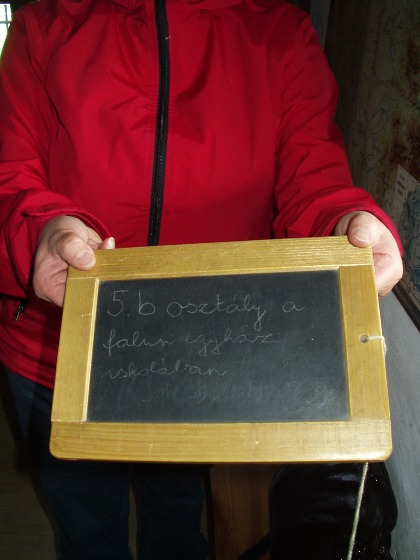 5.b osztály a
falusi egyház
iskolában